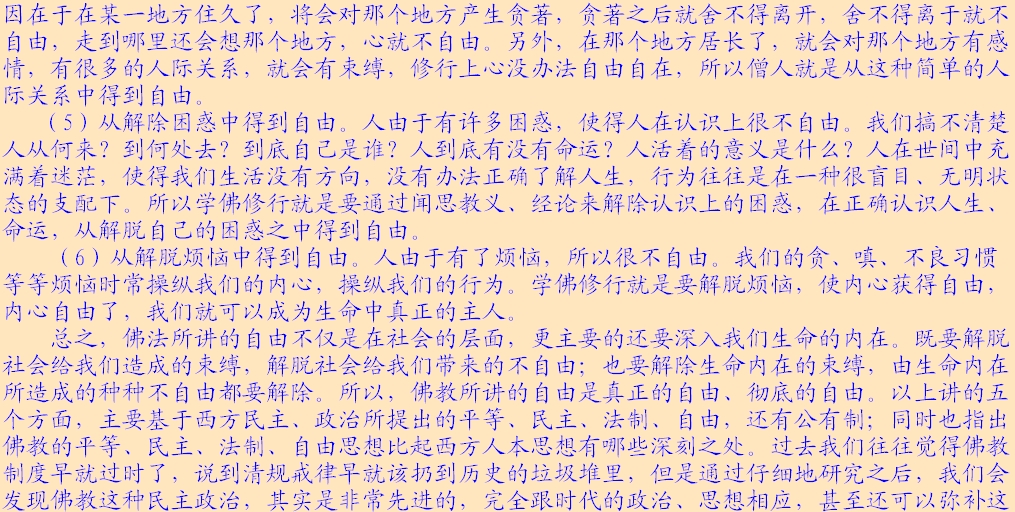 因在于在某一地方住久了，将会对那个地方产生贪著，贪著之后就舍不得离开，舍不得离于就不
自由，走到哪里还会想那个地方，心就不自由。另外，在那个地方居长了，就会对那个地方有感
情，有很多的人际关系，就会有束缚，修行上心没办法自由自在，所以僧人就是从这种简单的人
际关系中得到自由。
（5）从解除困惑中得到自由。人由于有许多困惑，使得人在认识上很不自由。我们搞不清楚
人从何来？到何处去？到底自己是谁？人到底有没有命运？人活着的意义是什么？人在世间中充
满着迷茫，使得我们生活没有方向，没有办法正确了解人生，行为往往是在一种很盲目、无明状
态的支配下。所以学佛修行就是要通过闻思教义、经论来解除认识上的困惑，在正确认识人生、
命运，从解脱自己的困惑之中得到自由。
（6）从解脱烦恼中得到自由。人由于有了烦恼，所以很不自由。我们的贪、嗔、不良习惯
等等烦恼时常操纵我们的内心，操纵我们的行为。学佛修行就是要解脱烦恼，使内心获得自由，
内心自由了，我们就可以成为生命中真正的主人。
总之，佛法所讲的自由不仅是在社会的层面，更主要的还要深入我们生命的内在。既要解脱
社会给我们造成的束缚，解脱社会给我们带来的不自由；也要解除生命内在的束缚，由生命内在
所造成的种种不自由都要解除。所以，佛教所讲的自由是真正的自由、彻底的自由。以上讲的五
个方面，主要基于西方民主、政治所提出的平等、民主、法制、自由，还有公有制；同时也指出
佛教的平等、民主、法制、自由思想比起西方人本思想有哪些深刻之处。过去我们往往觉得佛教
制度早就过时了，说到清规戒律早就该扔到历史的垃圾堆里，但是通过仔细地研究之后，我们会
发现佛教这种民主政治，其实是非常先进的，完全跟时代的政治、思想相应，甚至还可以弥补这